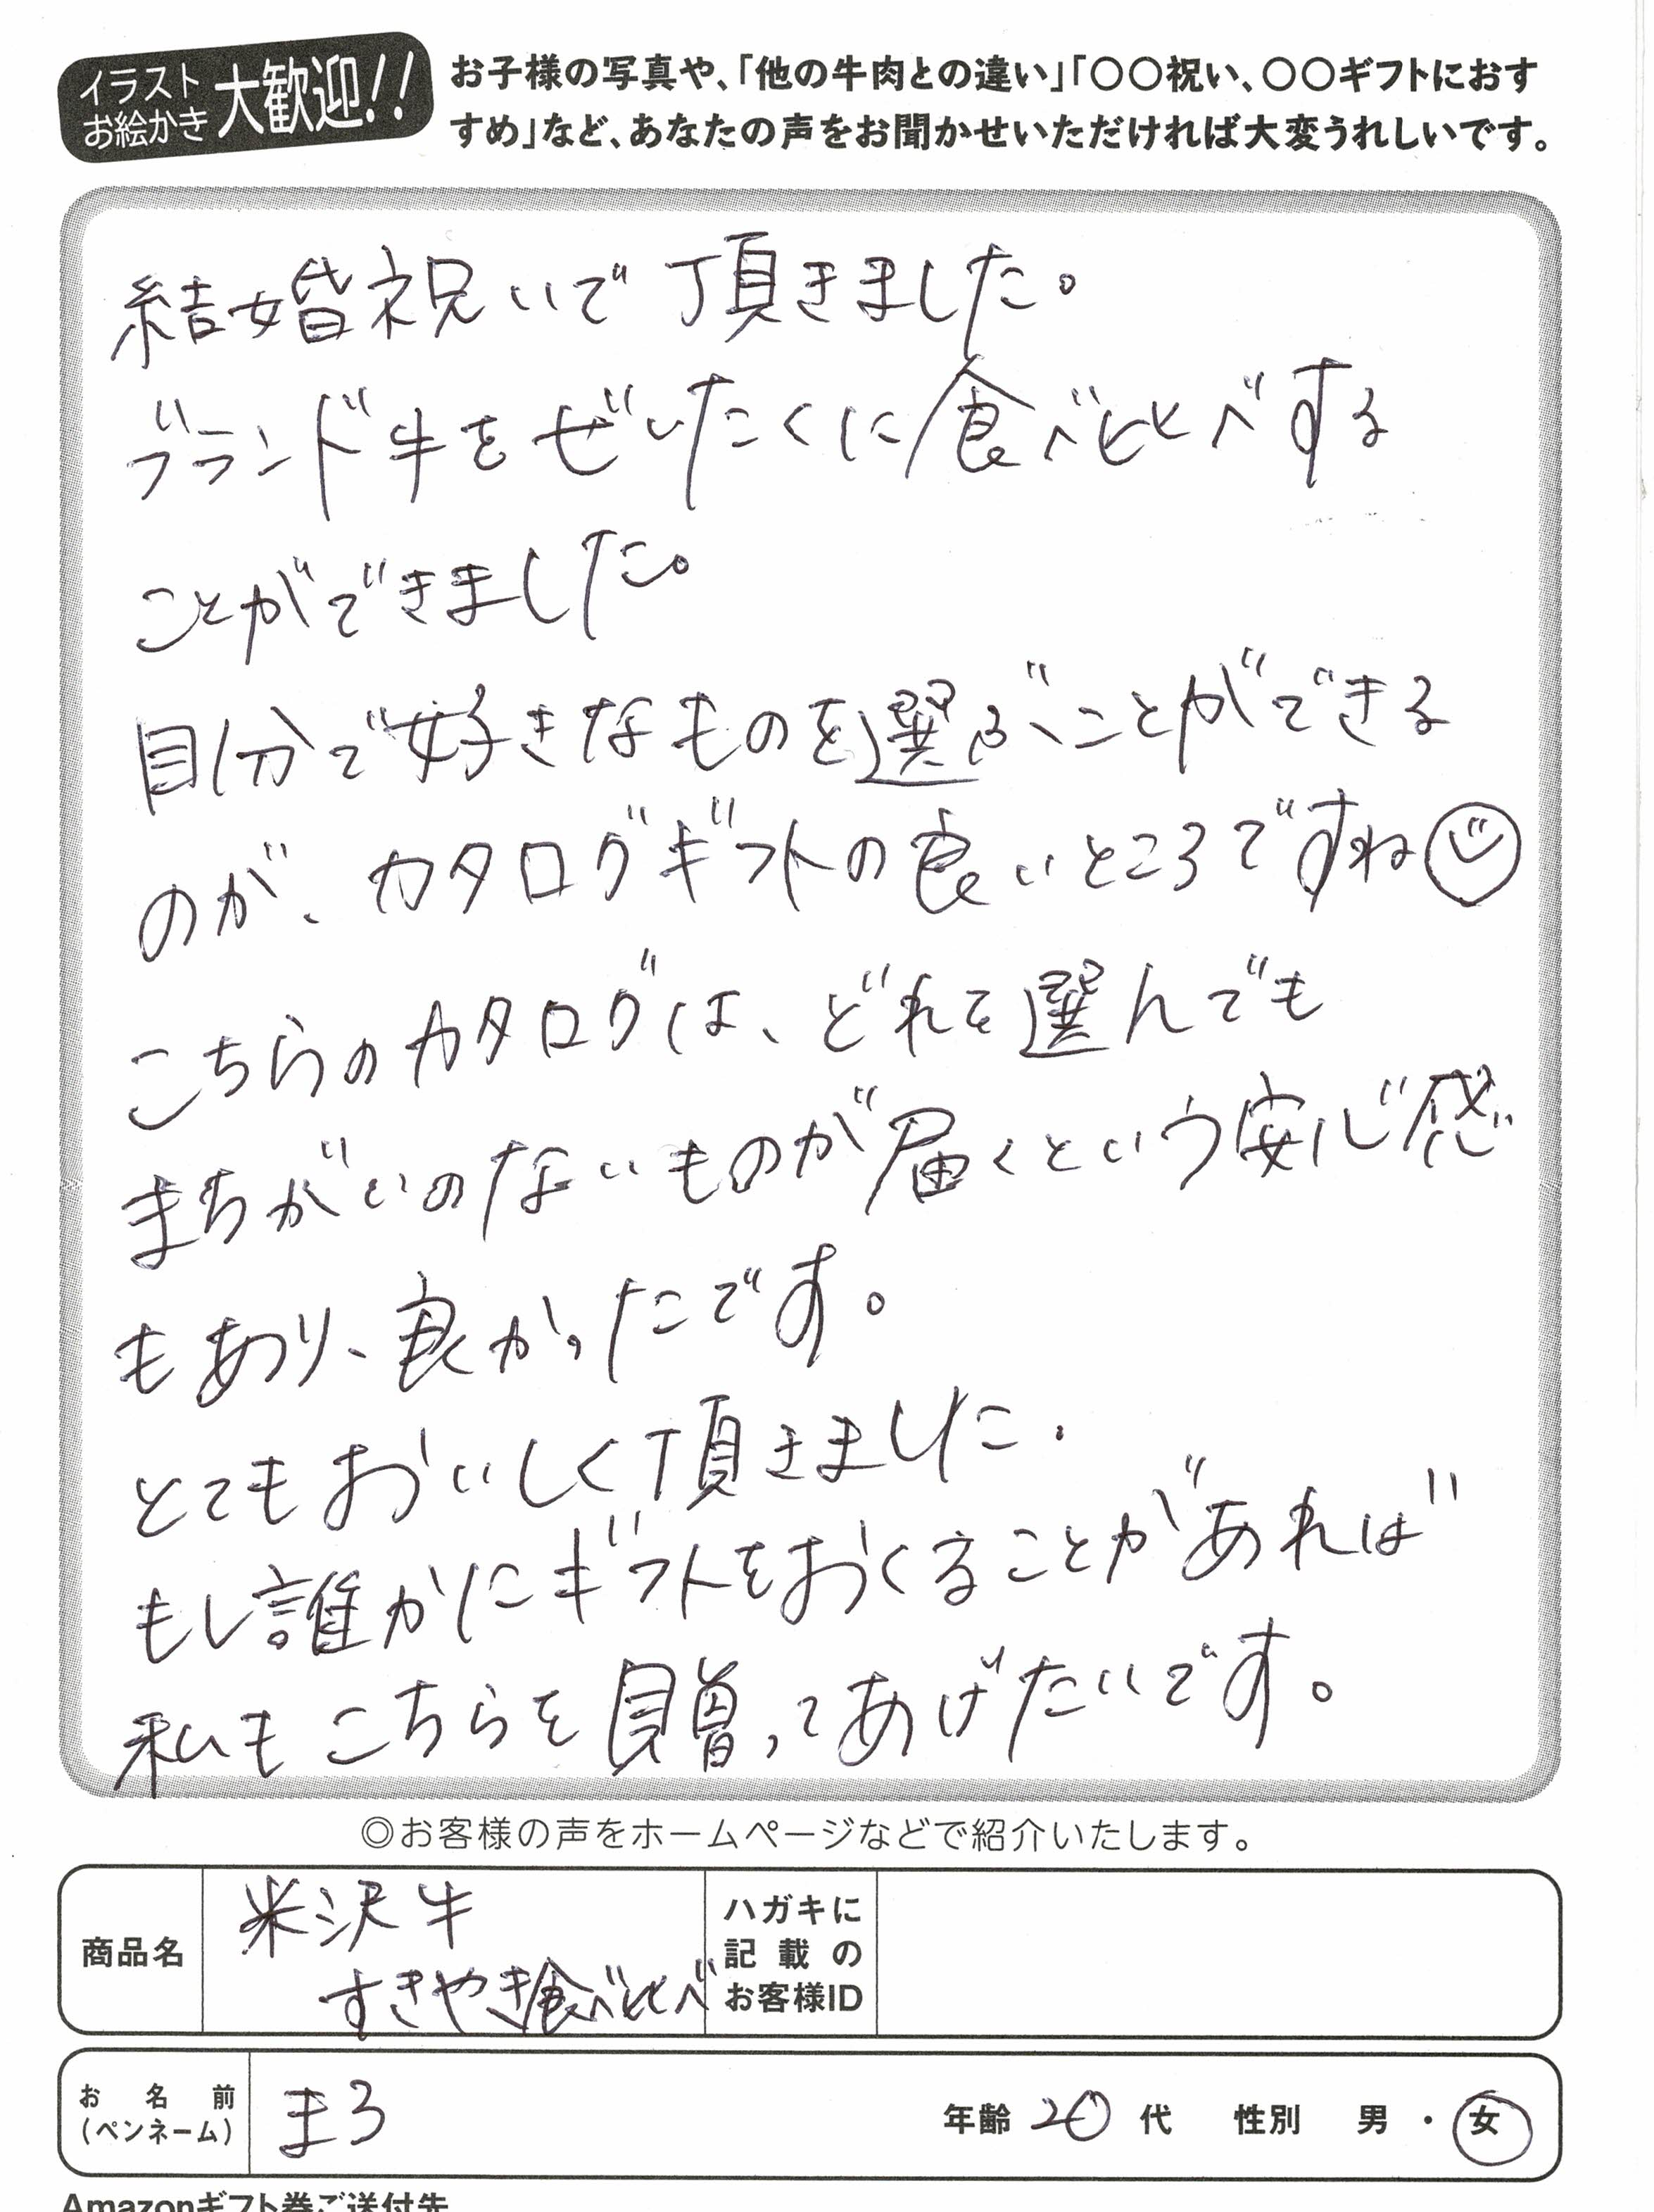 イラスト
お絵かき
大歓迎!!
お子様の写真や、「他の牛肉との違い」「〇〇祝い、〇〇ギフトにおす
すめ」など、あなたの声をお聞かせいただければ大変うれしいです。
結婚祝いで頂きました。
ブランド牛をぜいたくに食べ比べする
ことができました。
自分で好きなものを選ぶことができる
のが、カタログギフトの良いところですね
こちらのカタログは、どれを選んでも
まちがいのないものが届くという安心感
もあり、良かったです。
とてもおいしく頂きました.
もし誰かにギフトをおくることがあれば
私もこちらを贈ってあげたいです。
◎お客様の声をホームページなどで紹介いたします。
商品名
米沢牛
すきやき食べ比べ
ハガキに
記載の
お客様ID
お名前
(ペンネーム)
まろ
年齢 20 代 性別 男・女
Amazonギフト券ご送付先